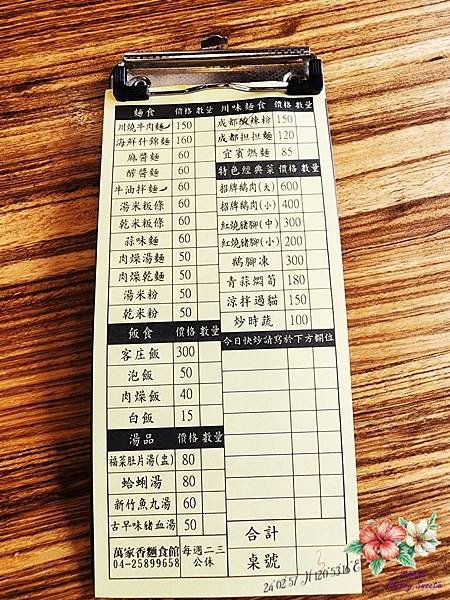 麵食 價格 數量
川燒牛肉麵 150
海鮮什錦麵 160
麻醬麵 60
醡醬麵 60
牛油拌麵 60
湯米粄條 60
乾米粄條 60
蒜味麵 60
肉燥湯麵 50
肉燥乾麵 50
湯米粉 50
乾米粉 50
飯食 價格 數量
客庄飯 300
泡飯 50
肉燥飯 40
白飯 15
湯品 價格 數量
福菜肚片湯(盅) 80
蛤蜊湯 80
新竹魚丸湯 60
古早味豬血湯 50
萬家香麵食館
04-25899658
每週二三
公休
川味麵食 價格 數量
成都酸辣粉 150
成都担担麵 120
宜賓燃麵 85
特色經典菜 價格 數量
招牌鵝肉(大) 600
招牌鵝肉(小) 400
紅燒豬腳(中) 300
紅燒豬腳(小) 200
鵝腳凍 300
青蒜燜筍 180
涼拌過貓 150
炒時蔬 100
今日快炒請寫於下方欄位
合計
桌號
3